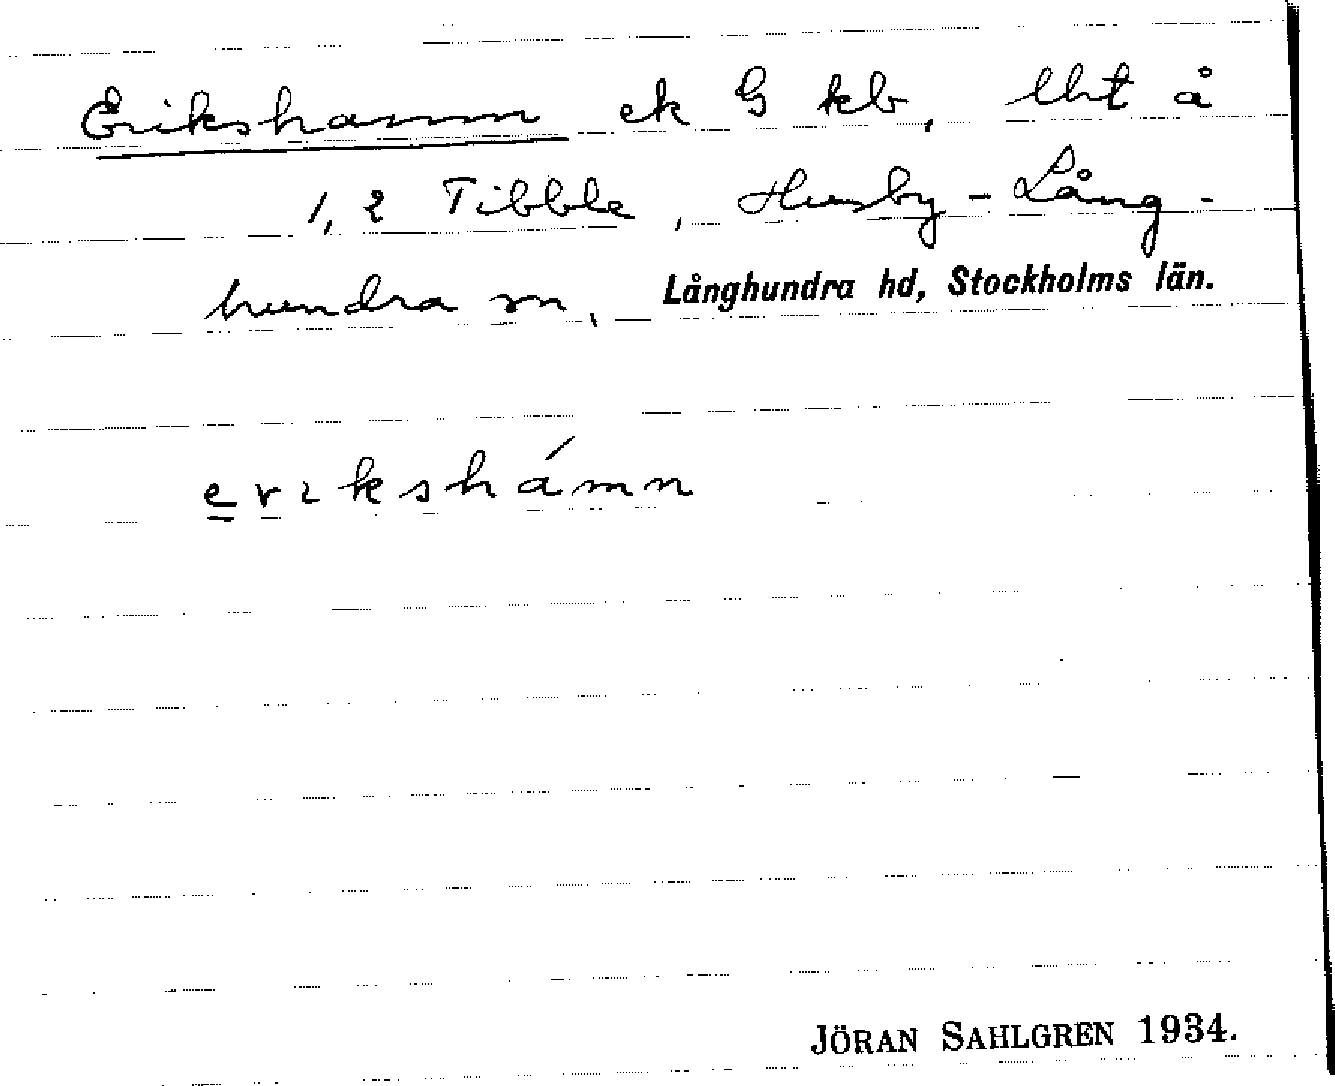 Erikshamn ek G kb, lht å
1,2 Tibble, Husby-Lång-
hundra sn, Långhundra hd, Stockholms län.
erikshámn
JÖRAN SAHLGREN 1934.